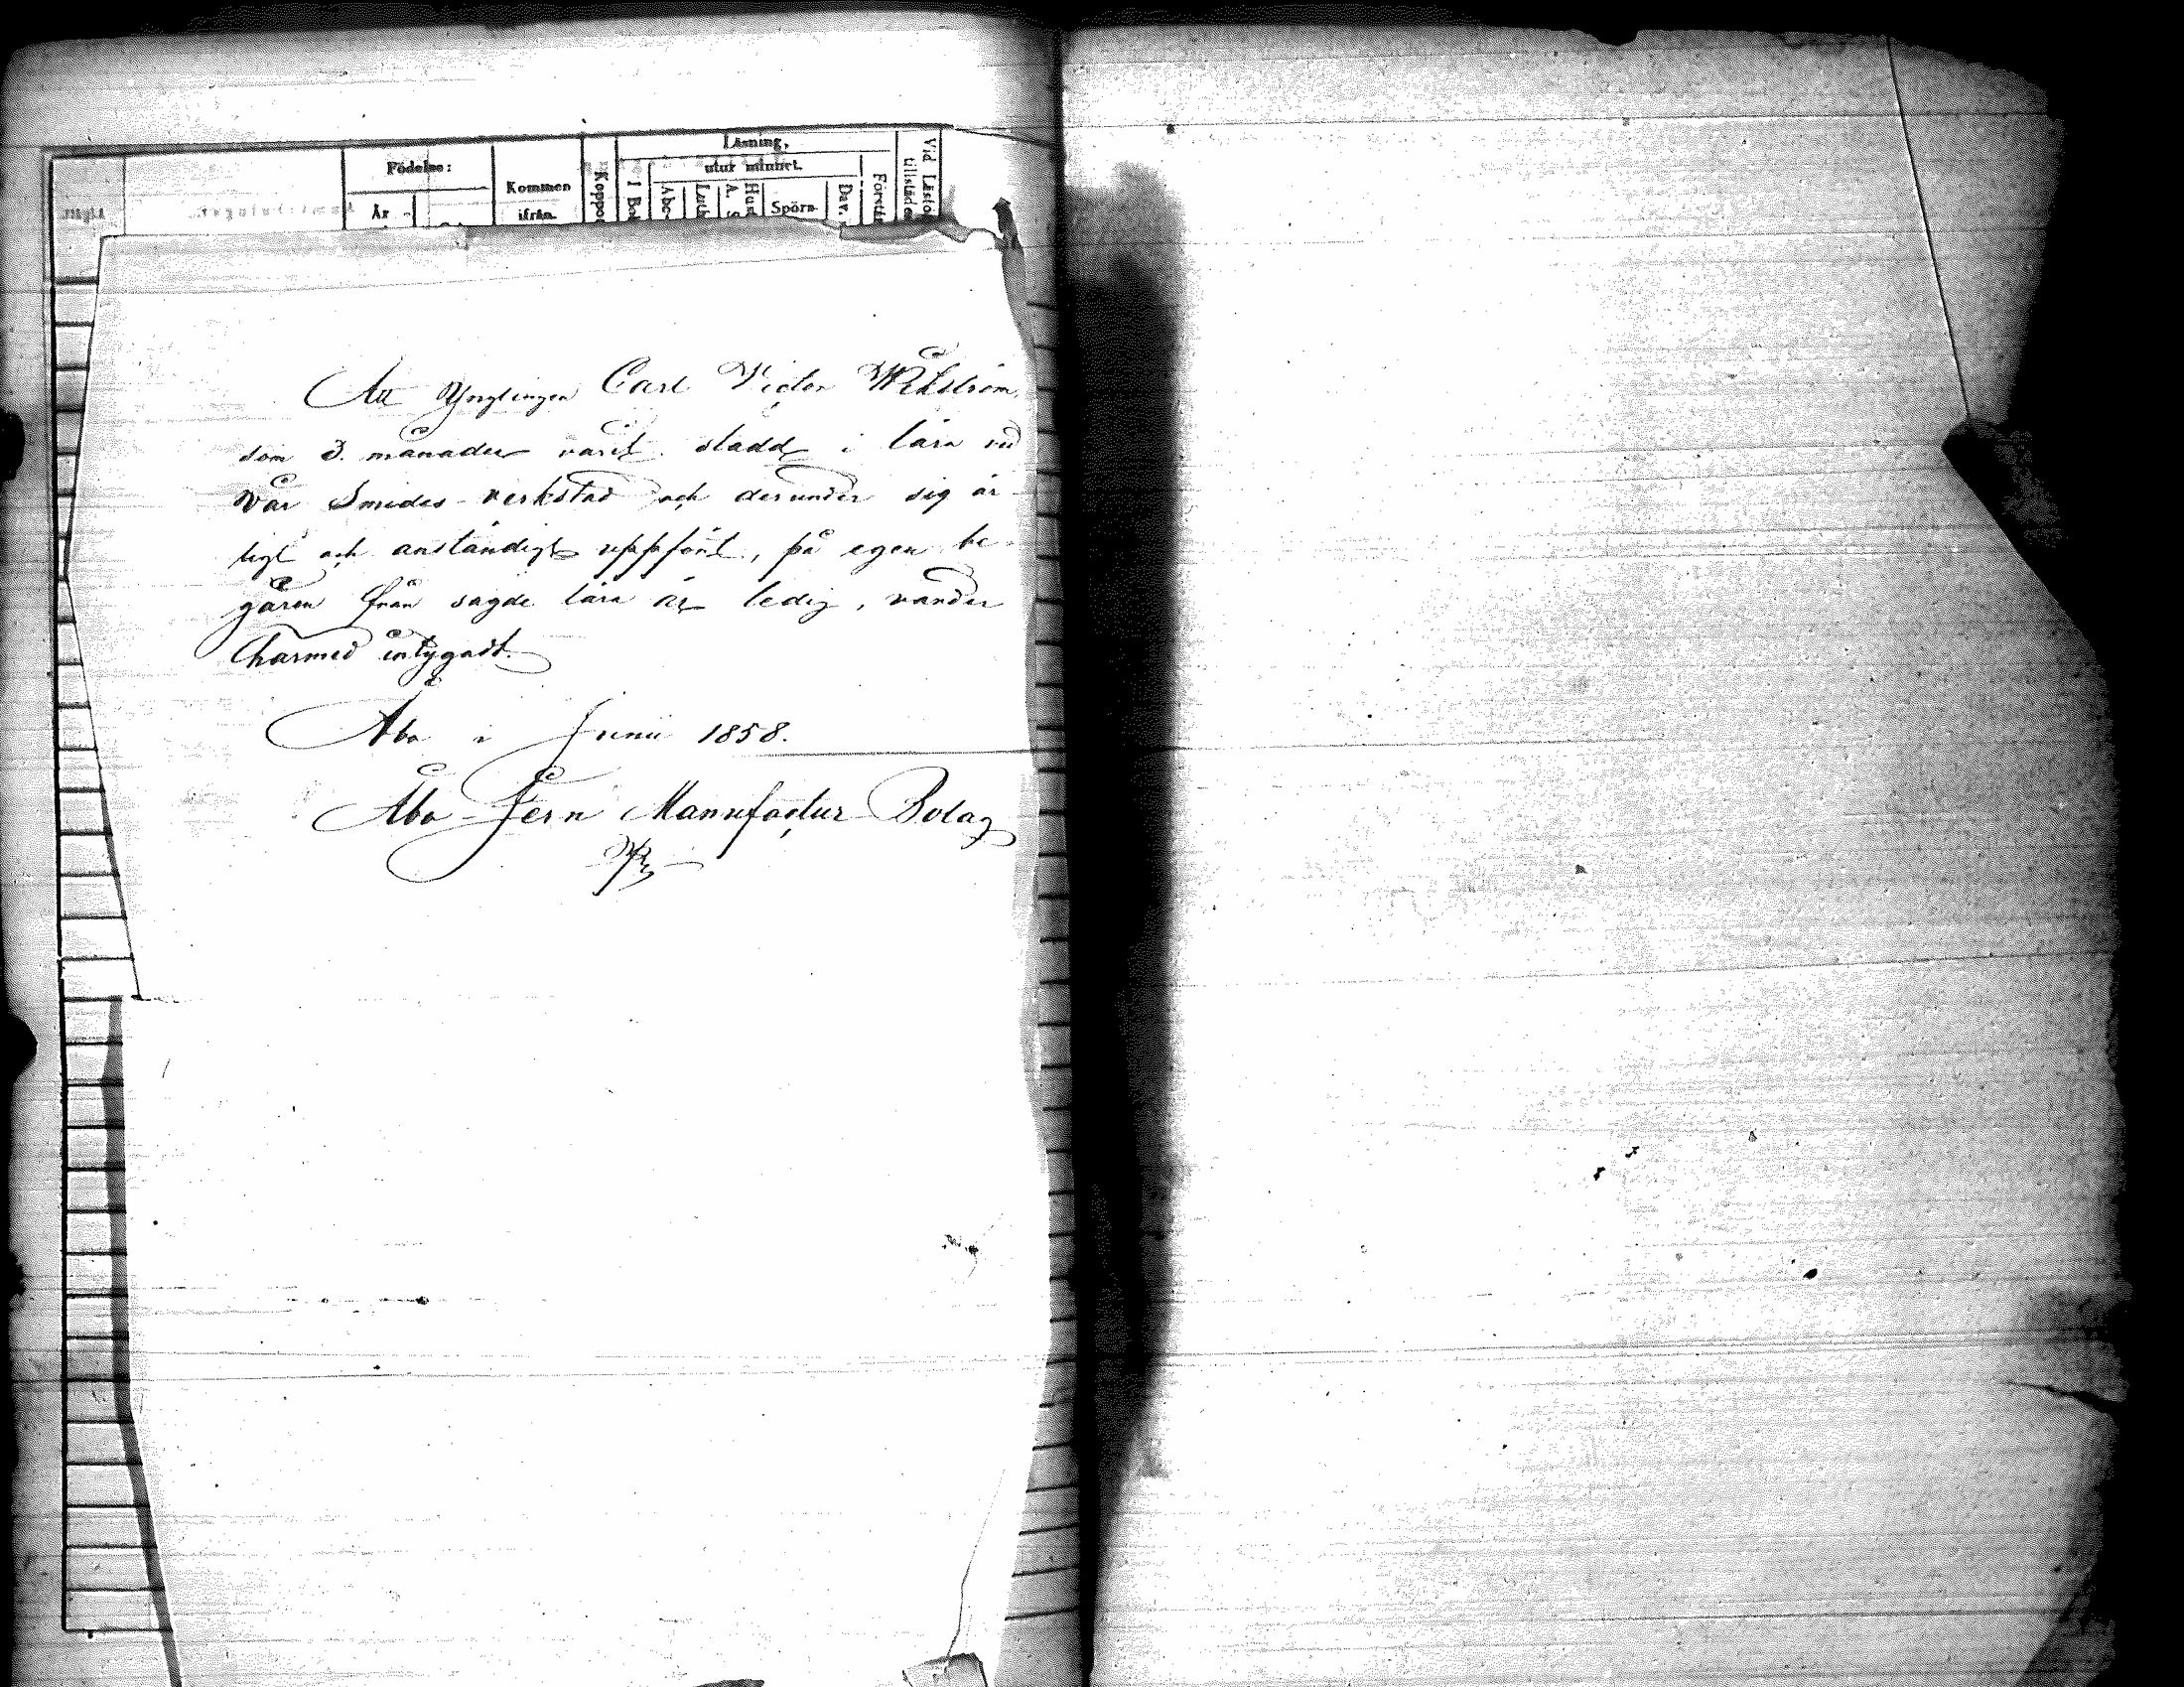 Födelse:
Kommen
ifrån.
År
Koppor
I Bok
Läsning,
utur minnet.
Abc-
Luth
Hus
A. S
Spörs-
Dav.
Förstå
Vid Läsför
tillstädes
Att Ynglingen Carl Victor Wikström,
som 3. månader varit stadd i lära vid
vår Smides-verkstad och derunder sig är-
ligt och anständigt uppfört, på egen be-
gäran från sagde lära är ledig, warder
härmed intygadt.
Åbo i Junii 1858.
Åbo Jern Manufactur Bolag